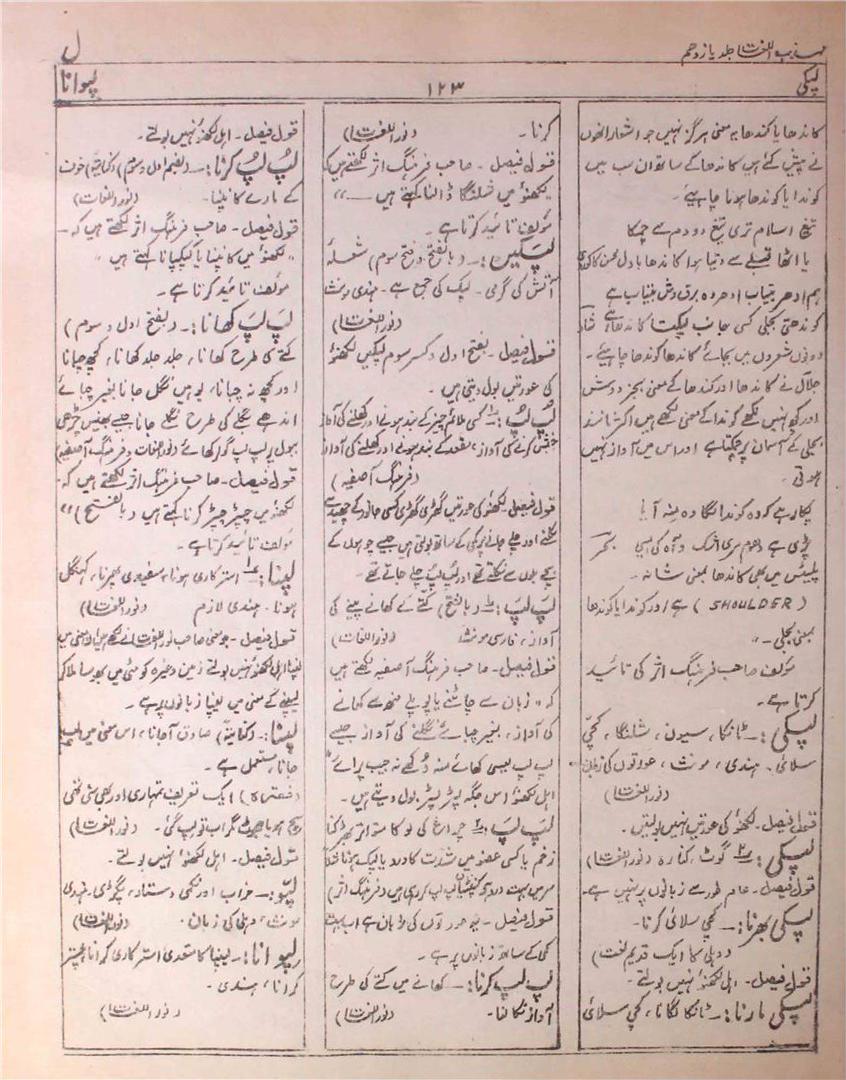 مہذب اللغات جلد یازدہم
ل
لپکی
۱۲۳
لپوانا
کاندھا یا کندھا بہ معنی ہرگز نہیں جو اشعار انھوں
نے پیش کئے ہیں کاندھا کے ساتھ ان سب میں
کوندا یا کوندھا ہونا چاہئیے۔
تیغ اسلام تری تیغ دو دم سے چمکا
یا اٹھا قبلے سے دنیا پر کاندھا بادل محسن کاکوروی
ہم ادھر بیتاب ادھر وہ برق وش بیتاب ہے
کوندھتی بجلی کسی جانب لپکتا کاندھا ہے شاد
دونوں شعروں میں بجائے کاندھا کوندھا چاہئیے۔
جلال نے کاندھا اور کندھا کے معنی بجز دوش
اور کچھ نہیں لکھے کوندا کے معنی لکھے ہیں اکثر مانند
بجلی کے آسمان پر چمکتا ہے اور اس میں آواز نہیں
ہوتی۔
پکار ہے کہ وہ کوندا لگا وہ مینہ آیا
پڑی ہے دھوم مری اشک و آہ کی ایسی بحر
پلیٹس میں بھی کاندھا بمعنی شانہ۔
(SHOULDER) ہے اور کوندا یا کوندھا
بمعنی بجلی۔"
مؤلف صاحب فرہنگ اثر کی تائید
کرتا ہے۔
لپکی:۔ ٹانکا، سیون، شلنگا، کچی
سلائی۔ ہندی، مونث، عورتوں کی زبان
(نوراللغات)
قول فیصل۔ لکھنؤ کی عورتیں نہیں بولتیں۔
لپکی: ۲؎ گوٹ، کنارہ (نوراللغات)
قول فیصل۔ عام طور سے زبانوں پر نہیں ہے۔
لپکی بھرنا:۔ کچی سلائی کرنا۔
(دہلی کا ایک قدیم لغت)
قول فیصل۔ اہل لکھنؤ نہیں بولتے۔
لپکی مارنا:۔ ٹانکا لگانا، کچی سلائی
کرنا۔ (نوراللغات)
قول فیصل۔ صاحب فرہنگ اثر لکھتے ہیں کہ
لکھنؤ میں شلنگا ڈالنا کہتے ہیں۔"
مؤلف تائید کرتا ہے۔
لپکیں:۔ (بالفتح و فتح سوم) شعلہ
آتش کی گرمی۔ لپک کی جمع ہے۔ ہندی مونث
(نوراللغات)
قول فیصل۔ بفتح اول و کسر سوم لپکیں لکھنؤ
کی عورتیں بول دیتی ہیں۔
لپ لپ: ۱؎ کسی ملائم چیز کے بند ہونے اور کھلنے کی آواز
جنبش کرنے کی آواز، مقعد کے بند ہونے اور کھلنے کی آواز
(فرہنگ آصفیہ)
قول فیصل۔ لکھنؤ کی عورتیں گھڑی گھڑی کسی جانور کے چھید سے
نکلنے اور چلے جانے پر کی کے ساتھ بولتی ہیں جیسے چوہوں کے
بچے بلوں سے نکلتے تھے اور لپ لپ چلے جاتے تھے۔
لپ لپ: ۱؎ (بالفتح) کتے کے کھانے پینے کی
آواز، فارسی مونث (نوراللغات)
قول فیصل۔ صاحب فرہنگ آصفیہ لکھتے ہیں
کہ "زبان سے چاٹنے یا پوپلے منھ سے کھانے
کی آواز، بغیر چبائے نگلنے کی آواز جیسے
لپ لپ لپسی کھائے منہ دکھے نہ جیب پرائے"
اہل لکھنؤ اس جگہ لپڑ لپڑ بول دیتے ہیں۔
لپ لپ: ۲؎ چراغ کی لو کا متواتر بھڑکنا
زخم یا کسی عضو میں شدت کا درد یا لپک ہونا
سر میں بہت درد ہے کنپٹیاں لپ لپ کر رہی ہیں (فرہنگ اثر)
قول فیصل۔ یہ عورتوں کی زبان ہے اب بہت
کمی کے ساتھ زبانوں پر ہے۔
لپ لپ کرنا:۔ کھانے میں کتے کی طرح
آواز نکالنا۔ (نوراللغات)
قول فیصل۔ اہل لکھنؤ نہیں بولتے۔
لپ لپ کرنا:۔ (بضم اول و سوم) (کنایۃ) خوف
کے مارے کانپنا۔ (نوراللغات)
قول فیصل۔ صاحب فرہنگ اثر لکھتے ہیں کہ۔
"لکھنؤ میں کانپنا یا کپکپانا کہتے ہیں"
مؤلف تائید کرتا ہے۔
لپ لپ کھانا:۔ (بفتح اول و سوم)
کتے کی طرح کھانا، جلد جلد کھانا، کچھ چبانا
اور کچھ نہ چبانا، یوں ہیں نگل جانا بغیر چبائے
اندھے بگلے کی طرح نگلے جانا جیسے بھینس چڑھی
ببول پر لپ لپ گولر کھائے (نوراللغات و فرہنگ آصفیہ)
قول فیصل۔ صاحب فرہنگ اثر لکھتے ہیں کہ۔
لکھنؤ میں چپڑ چپڑ کرنا کہتے ہیں (بالفتح)"
مؤلف تائید کرتا ہے۔
لپنا: ۱؎ استرکاری ہونا، سفیدی پھرنا، کہگل
ہونا۔ ہندی لازم (نوراللغات)
قول فیصل۔ جو معنی صاحب نوراللغات نے لکھے ہیں ان معنی میں
لپنا اہل لکھنؤ نہیں بولتے زمین وغیرہ کو مٹی میں بھوسا ملا کر
لیپنے کے معنی میں لپنا زبانوں پر ہے۔
لپنا:۔ (کنایۃً) صادق آجانا، اس معنی میں لپ
جانا مستعمل ہے۔
(فقرہ) ایک تعریف تمہاری اور بھی سنی تھی
سچ ہو یا جھوٹ مگر اب تو لپ گئی۔ (نوراللغات)
قول فیصل۔ اہل لکھنؤ نہیں بولتے۔
لپّو:۔ خراب اور نکمی دستار، پگڑی۔ ہندی
مونث، دہلی کی زبان۔ (نوراللغات)
لپوانا:۔ لیپنا کا متعدی استرکاری کرانا پلستر
کرانا، ہندی۔
(نوراللغات)